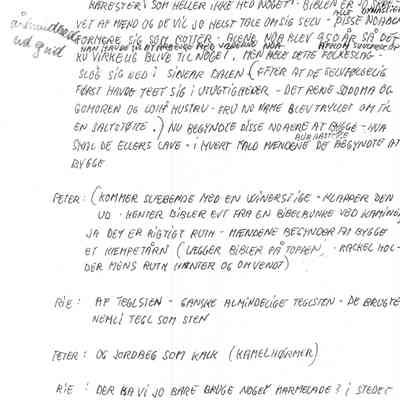 HARBESTER) SOM HELLER IKKE HED NOGET. BIBLEN ER JO SKRE-
VET AF MÆND OG DE VIL JO HELST TALE OM SIG SELV - DISSE NOAER
FORMERE SIG SOM ROTTER - ALENE NOA BLEV 950 ÅR SÅ DET
KU VIRKELIG BLIVE TIL NOGET. MEN HELE DETTE FOLKESLAG -
SLOG SIG NED I SINEAR DALEN (EFTER AT DE FØLGELIG
FØRST HAVDE TEET SIG I UTUGTIGHEDER - DET RENE SODOMA OG
GOMORRA OG LOTH HUSTRU - FRU NO NAME BLEV TRYLLET OM TIL
EN SALTSTØTTE.) NU BEGYNDTE DISSE NOAERE AT BYGGE - HVA
SKAL DE ELLERS LAVE - I HVERT FALD MÆNDENE DE BEGYNDTE AT
BYGGE
PETER: (KOMMER SVÆRENDE MED EN VAINERSTIGE - KLAPPER DEN
UD - HENTER BIBLER EVT FRA EN BIBELBUNKE VED KAMINEN
JA DET ER RIGTIGT RUTH - MÆNDENE BEGYNDER AT BYGGE
ET KÆMPETÅRN (LÆGGER BIBLER PÅ TOPPEN, RACKEL HOL-
DER MENS RUTH HENTER OG OMVENDT)
RIE: AF TEGLSTEN - GANSKE ALMINDELIGE TEGLSTEN - DE BRUGTE
NEMLI TEGL SOM STEN
PETER: OG JORDBEG SOM KALK (KAMELHØRMER)
RIE: DER KA VI JO BARE BRUGE NOGET MARMELADE? I STEDET